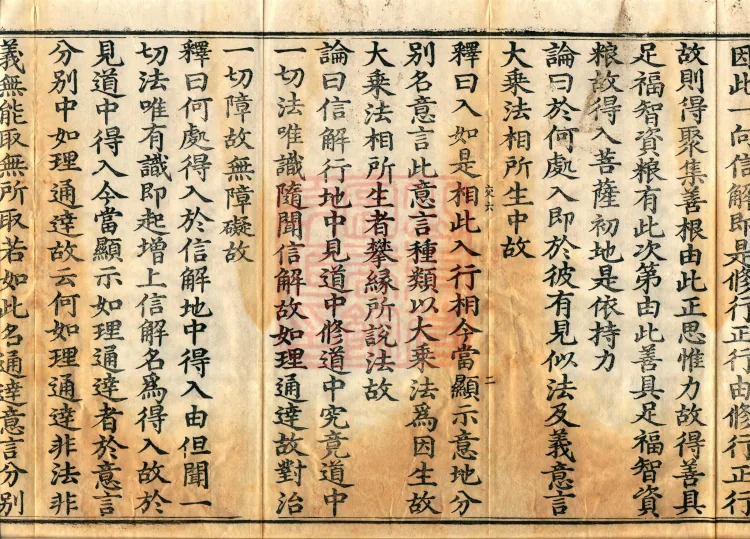 因此一向信解即是修行正行由修行正行
故則得聚集善根由此正思惟力故得善具
足福智資粮有此次第由此善具足福智資
粮故得入菩薩初地是依持力
論曰於何處入即於彼有見似法及義意言
大乘法相所生中故
交六
二
釋曰入如是相此入行相今當顯示意地分
別名意言此意言種類以大乘法爲因生故
大乘法相所生者攀緣所說法故
論曰信解行地中見道中修道中究竟道中
一切法唯識隨聞信解故如理通達故對治
一切障故無障礙故
釋曰何處得入於信解地中得入由但聞一
切法唯有識即起增上信解名爲得入故於
見道中得入今當顯示如理通達者於意言
分別中如理通達故云何如理通達非法非
義無能取無所取若如此名通達意言分別